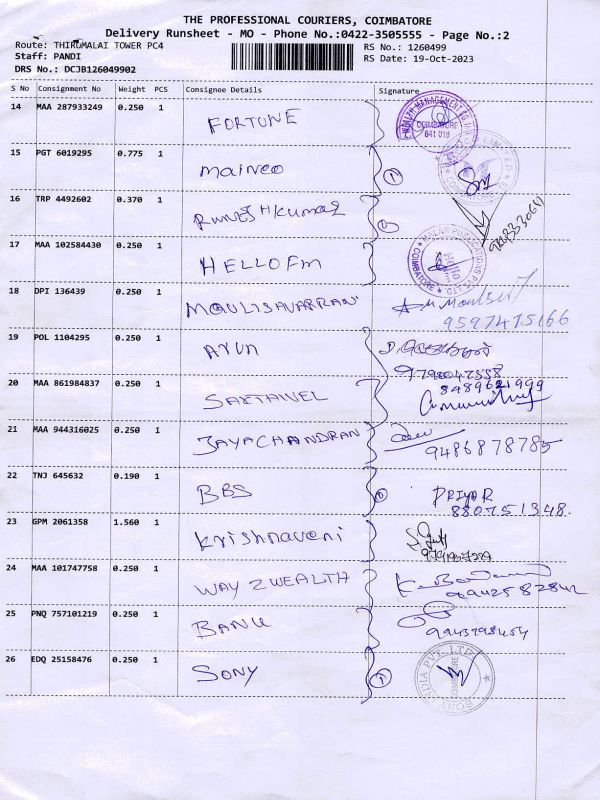 THE PROFESSIONAL COURIERS, COIMBATORE
Delivery Runsheet - MO - Phone No.:0422-3505555 - Page No.:2
Route: THIRUMALAI TOWER PC4
RS No.: 1260499
Staff: PANDI
RS Date: 19-Oct-2023
DRS No.: DCJB126049902
S No Consignment No Weight PCS Consignee Details Signature
14 MAA 287933249 0.250 1 FORTUNE
COIMBATORE
641 018
15 PGT 6019295 0.775 1 Maineo
16 TRP 4492602 0.370 1
17 MAA 102584430 0.250 1 HELLOFM
COIMBATORE
Hello
18 DPI 136439 0.250 1 MOULISAVARRAN
9597475166
19 POL 1104295 0.250 1 ARUN
20 MAA 861984837 0.250 1 SAKTHIVEL
8489621999
21 MAA 944316025 0.250 1 JAYACHANDRAN
9486878785
22 TNJ 645632 0.190 1 BBS ① PRIYA R
880751348.
23 GPM 2061358 1.560 1 Krishnaveni
24 MAA 101747758 0.250 1 WAY 2WEALTH
25 PNQ 757101219 0.250 1 BANU
26 EDQ 25158476 0.250 1 SONY ①
SONY INDIA PVT. LTD.
COIMBATORE